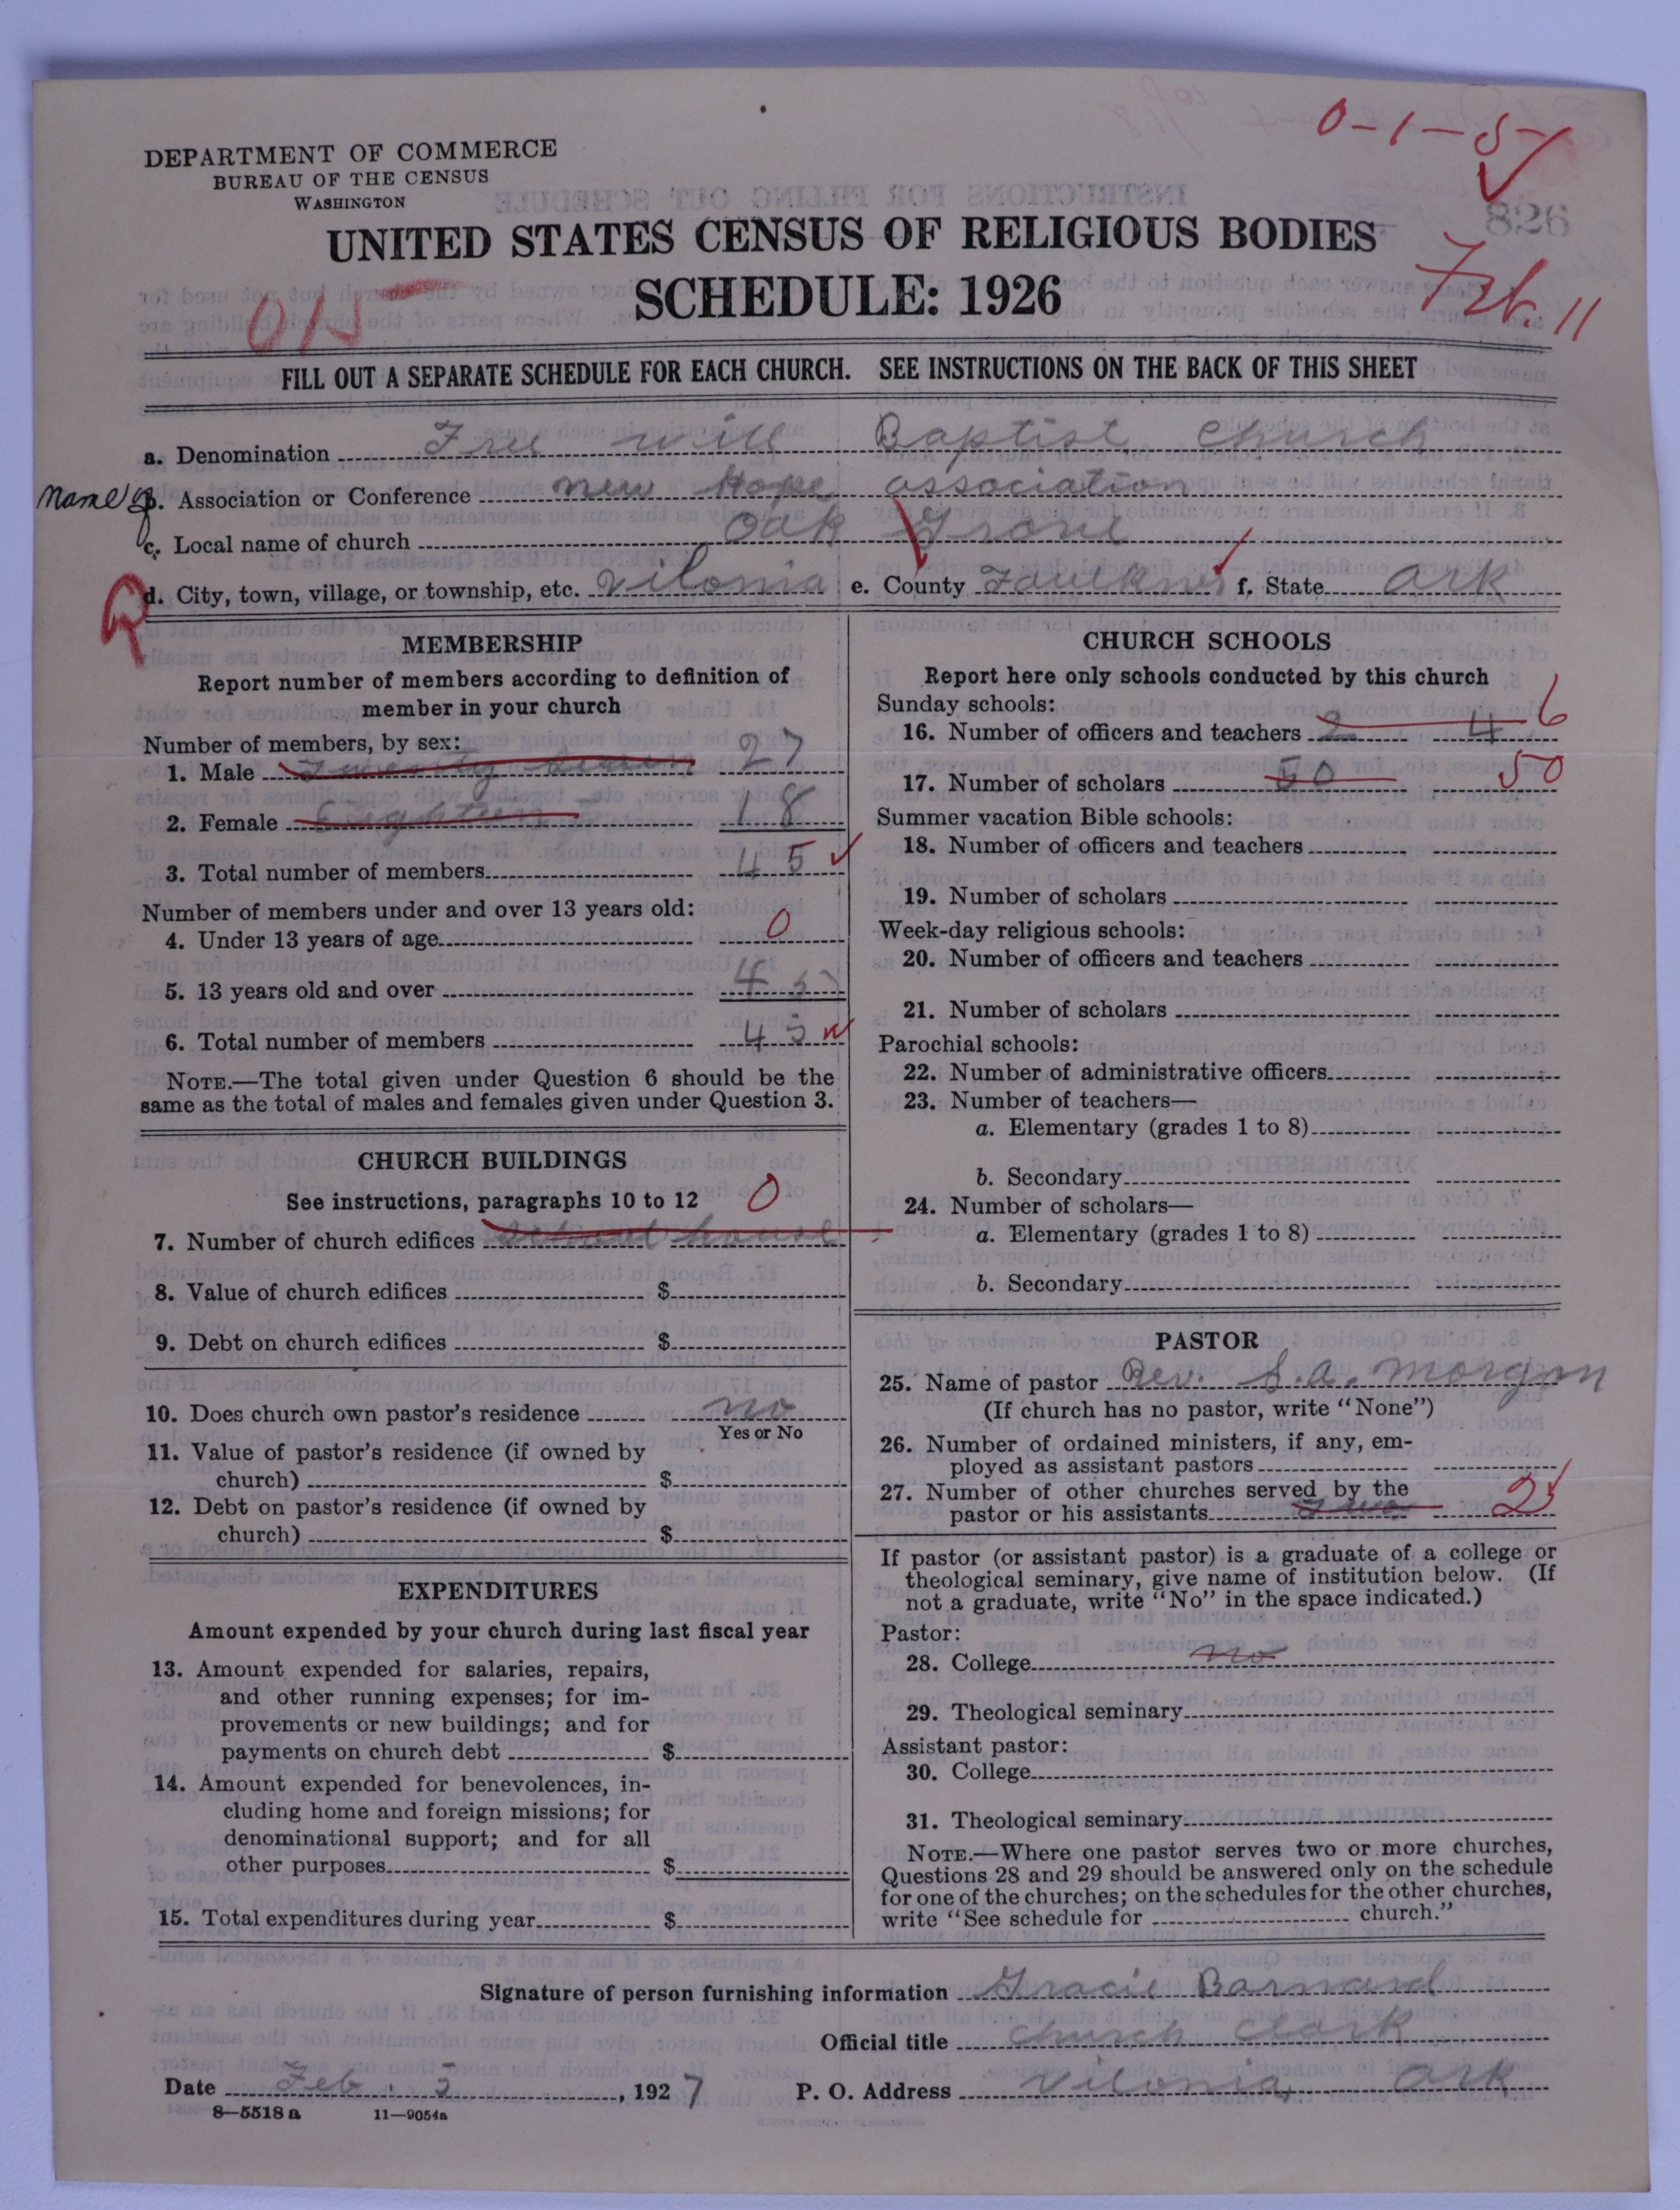 0-1-5
826
DEPARTMENT OF COMMERCE
BUREAU OF THE CENSUS
WASHINGTON
UNITED STATES CENSUS OF RELIGIOUS BODIES
SCHEDULE: 1926
Feb. 11
FILL OUT A SEPARATE SCHEDULE FOR EACH CHURCH. SEE INSTRUCTIONS ON THE BACK OF THIS SHEET
a. Denomination Free will Baptist church
Name of b. Association or Conference new Hope association
c. Local name of church Oak Grove
d. City, town, village, or township, etc. Vilonia e. County Faulkner f. State Ark
MEMBERSHIP
Report number of members according to definition of
member in your church
Number of members, by sex:
1. Male Twenty Seven 27
2. Female Eighteen 18
3. Total number of members 45
Number of members under and over 13 years old:
4. Under 13 years of age 0
5. 13 years old and over 45
6. Total number of members 45
NOTE.—The total given under Question 6 should be the
same as the total of males and females given under Question 3.
CHURCH BUILDINGS
See instructions, paragraphs 10 to 12 0
7. Number of church edifices school house
8. Value of church edifices $
9. Debt on church edifices $
10. Does church own pastor's residence no
Yes or No
11. Value of pastor's residence (if owned by
church) $
12. Debt on pastor's residence (if owned by
church) $
EXPENDITURES
Amount expended by your church during last fiscal year
13. Amount expended for salaries, repairs,
and other running expenses; for im-
provements or new buildings; and for
payments on church debt $
14. Amount expended for benevolences, in-
cluding home and foreign missions; for
denominational support; and for all
other purposes $
15. Total expenditures during year $
CHURCH SCHOOLS
Report here only schools conducted by this church
Sunday schools:
16. Number of officers and teachers 2 4 6
17. Number of scholars 50 50
Summer vacation Bible schools:
18. Number of officers and teachers
19. Number of scholars
Week-day religious schools:
20. Number of officers and teachers
21. Number of scholars
Parochial schools:
22. Number of administrative officers
23. Number of teachers—
a. Elementary (grades 1 to 8)
b. Secondary
24. Number of scholars—
a. Elementary (grades 1 to 8)
b. Secondary
PASTOR
25. Name of pastor Rev. S. A. Morgan
(If church has no pastor, write "None")
26. Number of ordained ministers, if any, em-
ployed as assistant pastors
27. Number of other churches served by the
pastor or his assistants two 2
If pastor (or assistant pastor) is a graduate of a college or
theological seminary, give name of institution below. (If
not a graduate, write "No" in the space indicated.)
Pastor:
28. College no
29. Theological seminary
Assistant pastor:
30. College
31. Theological seminary
NOTE.—Where one pastor serves two or more churches,
Questions 28 and 29 should be answered only on the schedule
for one of the churches; on the schedules for the other churches,
write "See schedule for church."
Signature of person furnishing information Gracie Barnard
Official title church clark
Date Feb. 5, 1927 P. O. Address Vilonia, Ark
8—5518 a 11—9054a